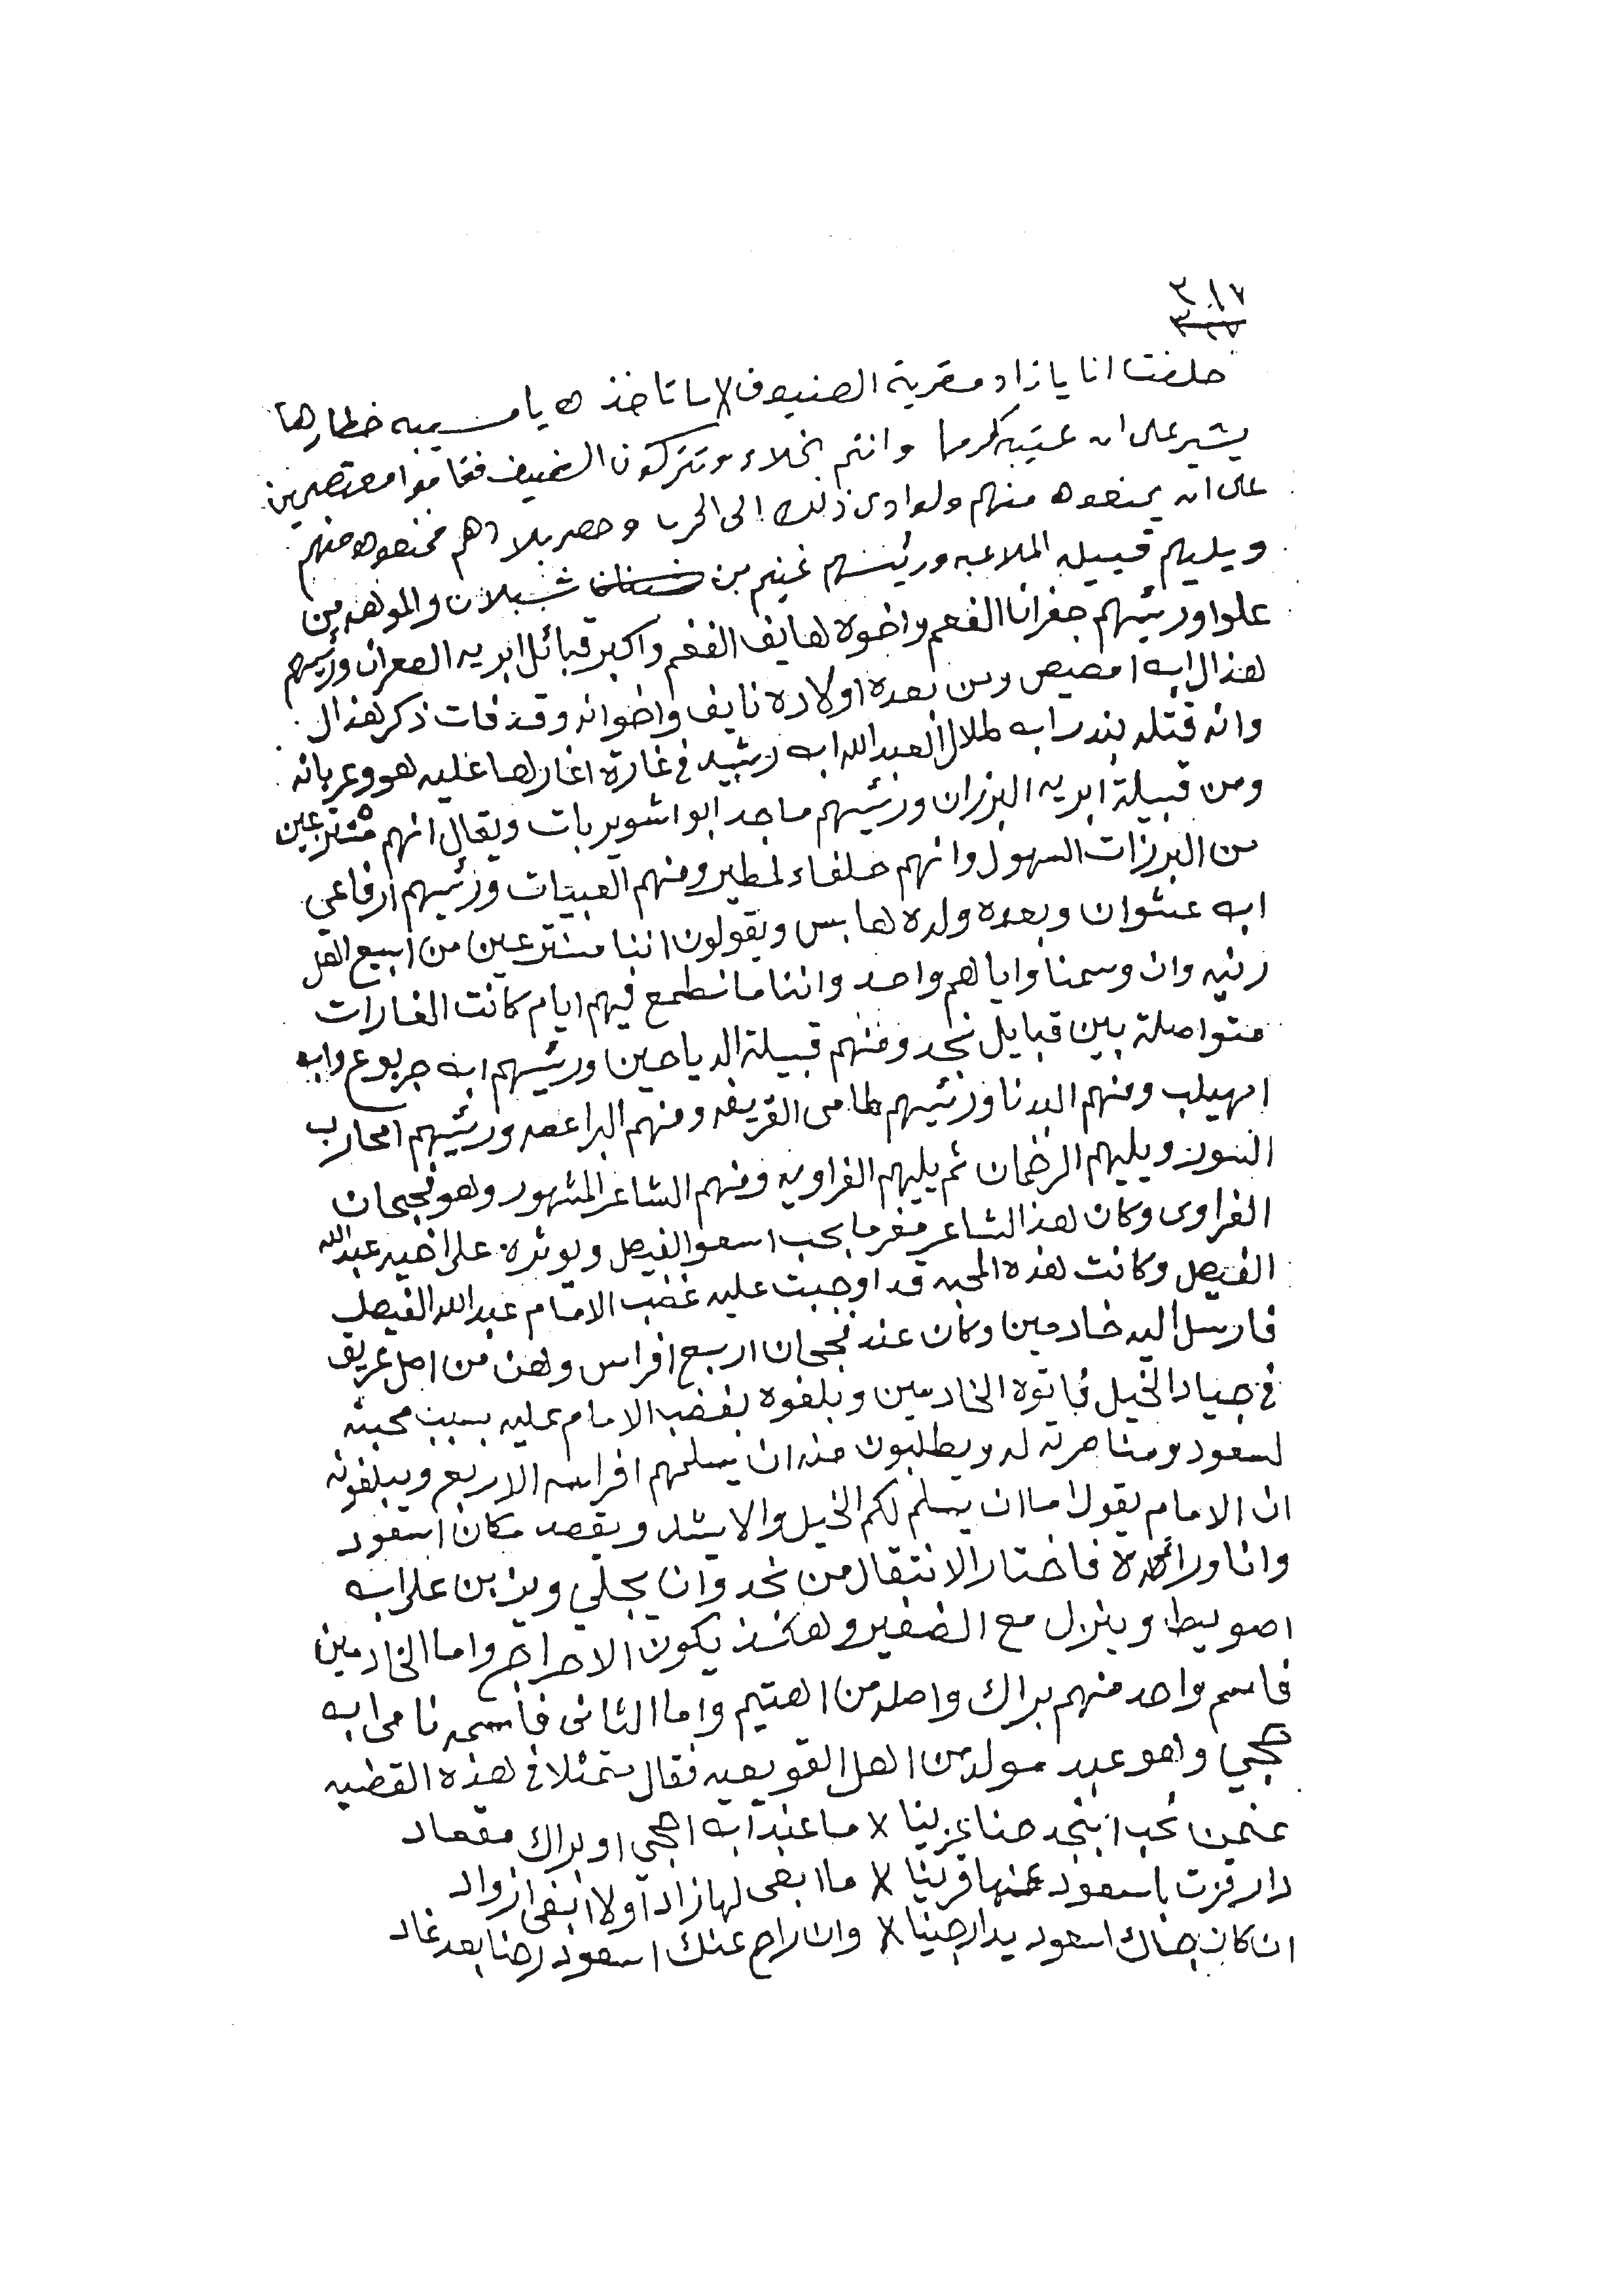 ٣١٧
حلفت انا يا زاد مقرية الضيوف لا ما تاخذه يا مسيبه خطارها
يشير على ان عتيبه كرما وانتم بخلاء وتتركون الضيف فقاموا معتصمين
على ان يمنعوه منهم ولو ادى ذلك الى الحرب وحصر بلادهم فمنعوه منهم
ويليهم قبيله الملاعبه ورئيسهم غنيم بن شبلان والموهه من
علوا ورئيهم جفران الفغم واخوه هايف الفغم واكبر قبائل ابريه الصعران ورئيسهم
هذال ابه امصيص ومن بعده اولاده نايف واخوانه وقد فات ذكر هذال
وانه قتله بندر ابه طلال العبدالله ابه رشيد في غارة اغارها عليه هو وعربانه
ومن قبيلة ابريه البرزان ورئيهم ماجد ابو اشويربات ويقال انهم متنزعين
من البرزات السهول وانهم حلفاء لمطير ومنهم العبيات ورئيهم ارفاعي
ابه عشوان وبعده ولده هابس ويقولون اننا متنزعين من اسبيع اهل
رنيه وان وسمنا واياهم واحد واننا ما نطمع فيهم ايام كانت الغارات
متواصلة بين قبايل نجد ومنهم قبيلة الدياحين ورئيهم ابه جربوع وابه
امهيلب ومنهم البدنا ورئيهم طامي القريفه ومنهم البراعصه ورئيهم امحارب
السور ويليهم الرخمان ثم يليهم الغراويه ومنهم الشاعر المشهور وهو فجحان
الفراوى وكان هذا الشاعر مغرما بحب اسعود الفيصل ويوثره على اخيه عبدالله
الفيصل وكانت هذه المحبه قد اوجبت عليه غضب الامام عبدالله الفيصل
فارسل اليه خادمين وكان عند فجحان اربع افراس وهن من اصل عريق
في جياد الخيل فاتوه الخادمين وبلغوه بغضب الامام عليه بسبب محبته
لسعود ومناصرته له ويطلبون منه ان يسلمهم افراسه الاربع ويبلغونه
ان الامام يقول اما ان يسلم لكم الخيل والا يشد ويقصد مكان اسعود
وانا وراه فاختار الانتقال من نجد وان يجلي ويزبن على ابه
اصويط وينزل مع الضفير وهكذا يكون الاحراج واما الخادمين
فاسم واحد منهم براك واصله من اهتيم واما الثاني فأسمه نامى ابه
هجي وهو عبد مولد من اهل القويعيه فقال متمثلا في هذه القضيه
عنمن نحب ابنجد حنا نجزينا لا ما عند ابه اهجي او براك مقعاد
دار قزت باسعود عنها قزينا لا ما ابغى لها زاد اولا ابغى ازواد
ان كان جناك اسعود يدار جينا لا وان راح عنك اسعود رحنا بعد غاد